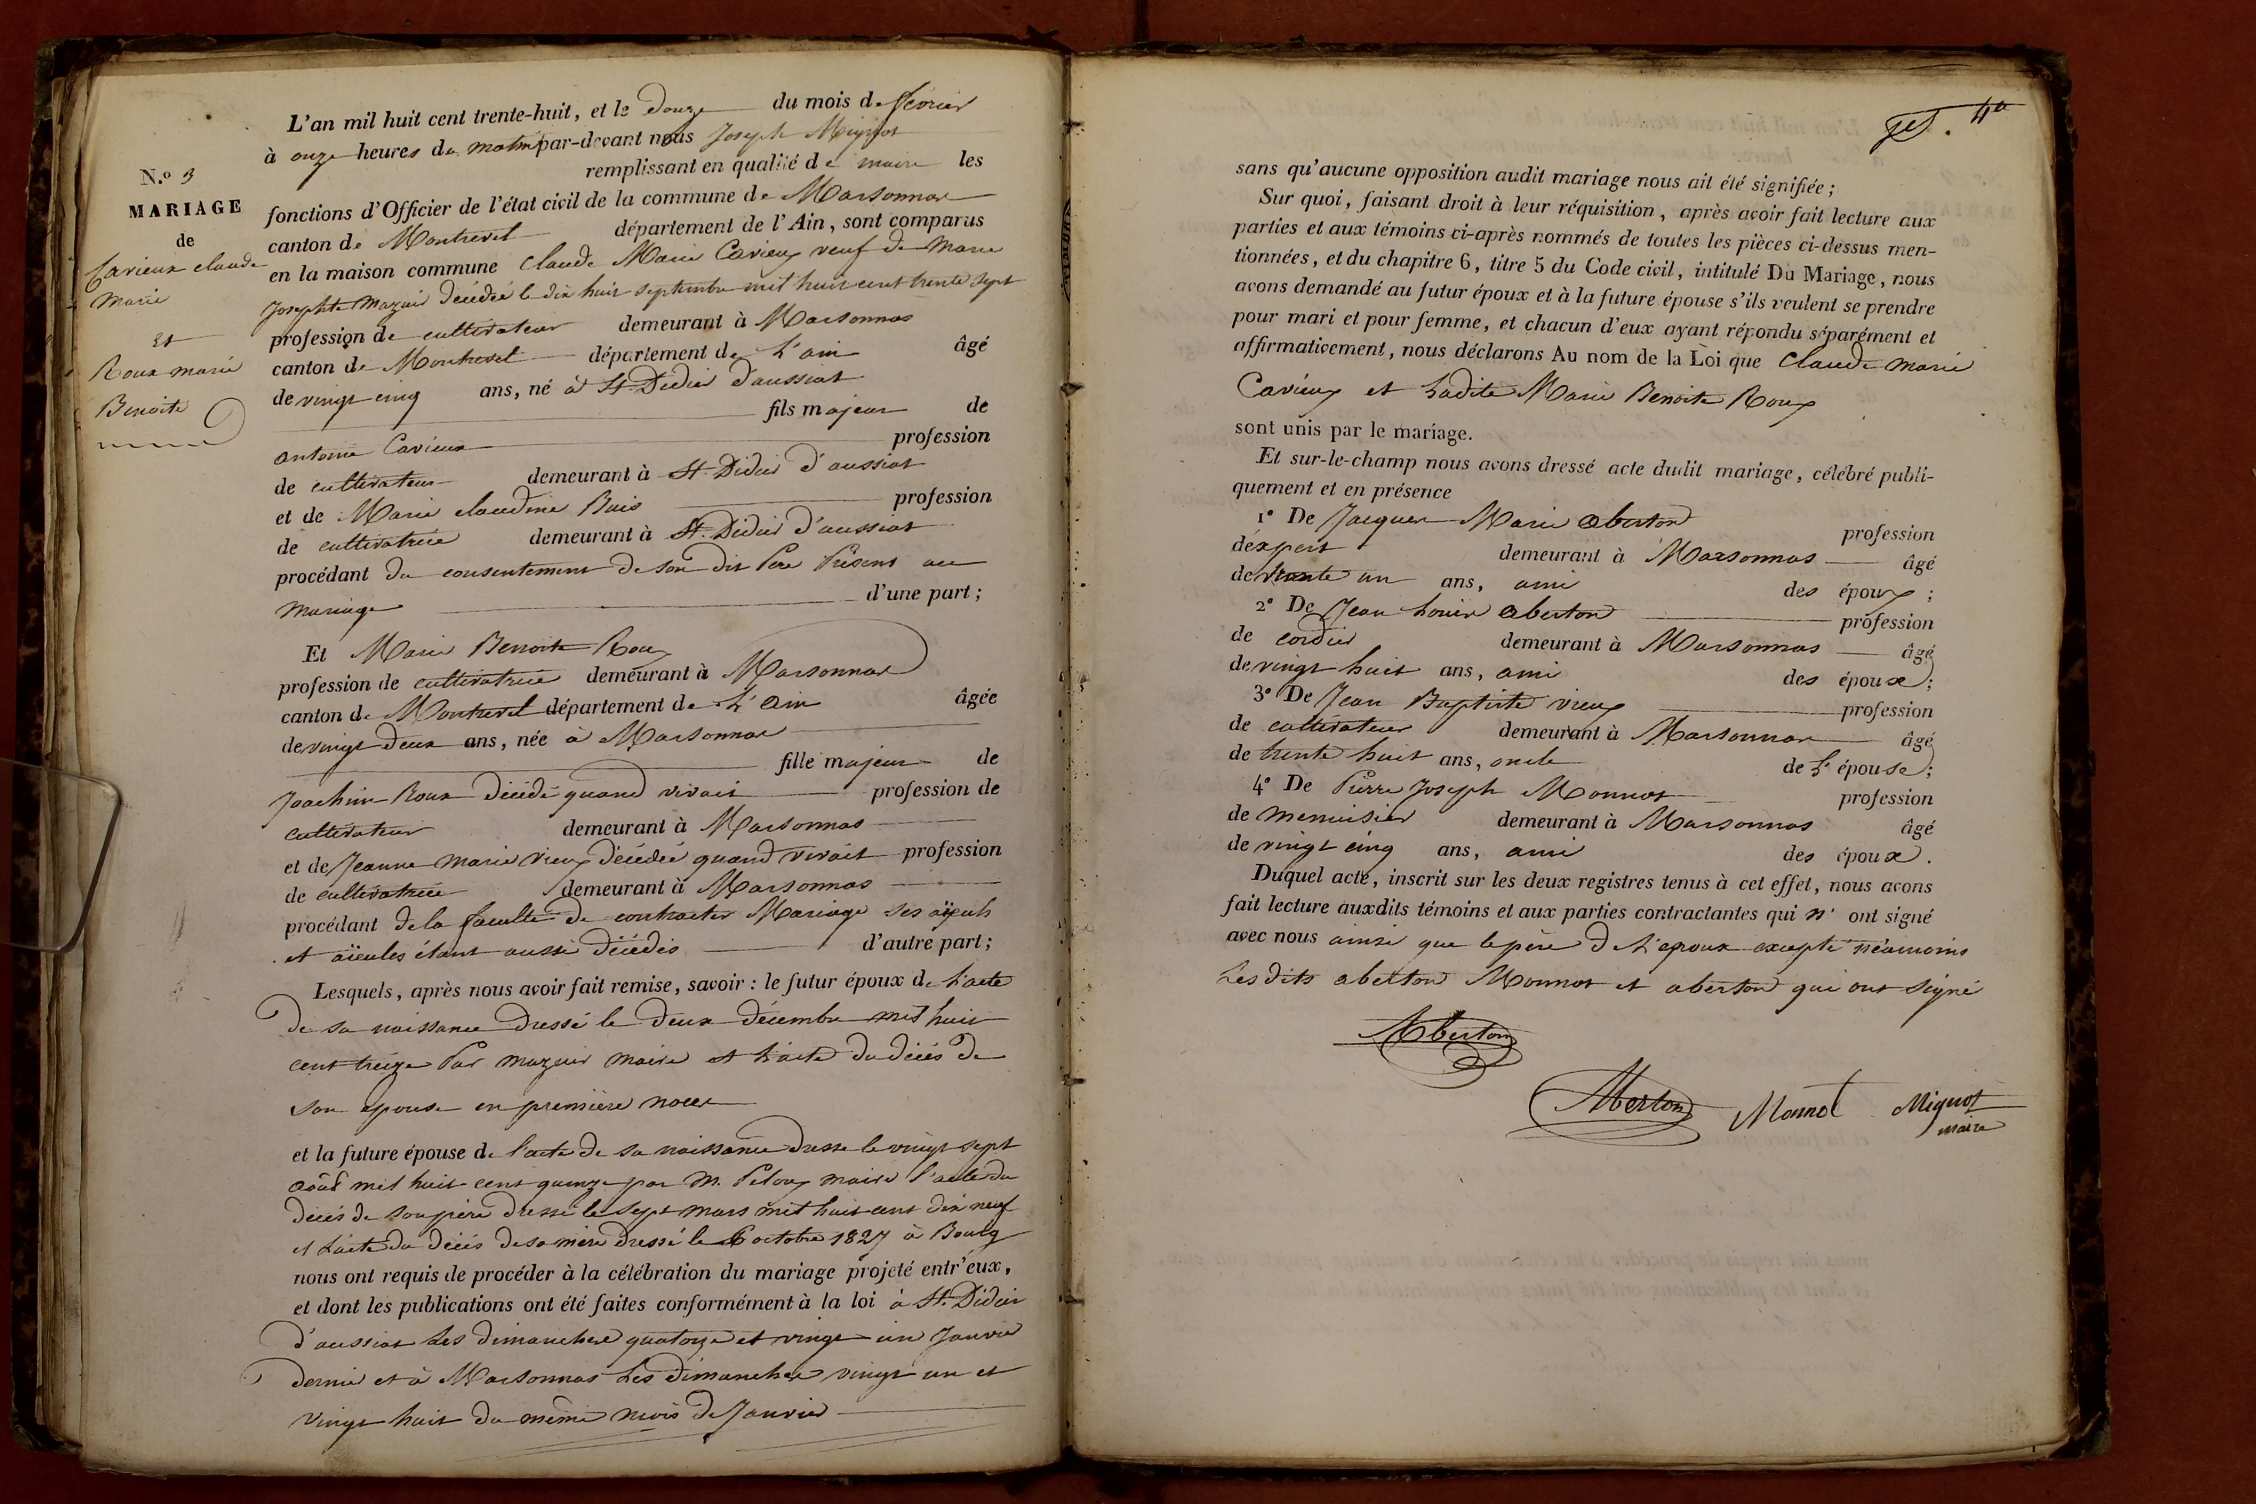 N.o 3
MARIAGE
de
Cavieux claude
marie
et
Roux marie
Benoite
L'an mil huit cent trente-huit, et le douze du mois de février
à onze heures du matin par-devant nous Joseph Mignot
remplissant en qualité de maire les
fonctions d'Officier de l'état civil de la commune de Marsonnas
canton de Montrevel département de l'Ain, sont comparus
en la maison commune Claude Marie Cavieux veuf de Marie
Josephte Mazuir décédée le dix huit septembre mil huit cent trente sept
profession de cultivateur demeurant à Marsonnas
canton de Montrevel département de L'ain âgé
de vingt cinq ans, né à St. Didier d'aussiat
fils majeur de
antoine Cavieux profession
de cultivateur demeurant à St. Didier d'aussiat
et de Marie claudine Buis profession
de cultivatrice demeurant à St. Didier d'aussiat
procédant du consentement de son dit Père Présent au
mariage d'une part;
Et Marie Benoite Roux
profession de cultivatrice demeurant à Marsonnas
canton de Montrevel département de L'Ain âgée
de vingt deux ans, née à Marsonnas
fille majeur de
Joachim Roux décédé quand vivait profession de
cultivateur demeurant à Marsonnas
et de Jeanne marie vieux décédée quand vivait profession
de cultivatrice demeurant à Marsonnas
procédant de la faculté de contracter Mariage ses aïeuls
et aïeules étant aussi décédés d'autre part;
Lesquels, après nous avoir fait remise, savoir : le futur époux de L'acte
de sa naissance dressé le deux décembre mil huit
cent treize Par mazuir maire et L'acte du décès de
son épouse en première noces
et la future épouse de l'acte de sa naissance dressé le vingt sept
août mil huit cent quinze par m. Peloux maire l'acte du
décès de son père dressé le sept mars mil huit cent dix neuf
et L'acte du décès de sa mère dressé le 6 octobre 1827 à Bourg
nous ont requis de procéder à la célébration du mariage projeté entr'eux,
et dont les publications ont été faites conformément à la loi à St. Didier
d'aussiat Les dimanches quatorze et vingt un Janvier
dernier et à Marsonnas Les dimanches vingt un et
vingt huit du même mois de Janvier
sans qu'aucune opposition audit mariage nous ait été signifiée;
Sur quoi, faisant droit à leur réquisition, après avoir fait lecture aux
parties et aux témoins ci-après nommés de toutes les pièces ci-dessus men-
tionnées, et du chapitre 6, titre 5 du Code civil, intitulé Du Mariage, nous
avons demandé au futur époux et à la future épouse s'ils veulent se prendre
pour mari et pour femme, et chacun d'eux ayant répondu séparément et
affirmativement, nous déclarons Au nom de la Loi que Claude marie
Cavieux et Ladite Marie Benoite Roux
sont unis par le mariage.
Et sur-le-champ nous avons dressé acte dudit mariage, célébré publi-
quement et en présence
1° De Jacques Marie Aberton profession
d'éxpert demeurant à Marsonnas âgé
de trente un ans, ami des époux;
2° De Jean Louis Aberton profession
de cordier demeurant à Marsonnas âgé
de vingt huit ans, ami des époux;
3° De Jean Baptiste vieux profession
de cultivateur demeurant à Marsonnas âgé
de trente huit ans, oncle de L'épouse;
4° De Pierre Joseph Monnot profession
de menuisier demeurant à Marsonnas âgé
de vingt cinq ans, ami des époux.
Duquel acte, inscrit sur les deux registres tenus à cet effet, nous avons
fait lecture auxdits témoins et aux parties contractantes qui n' ont signé
avec nous ainsi que le père de L'époux excepté néanmoins
Les dits aberton Monnot et aberton qui ont signé
Aberton
Aberton Monnot Mignot
maire